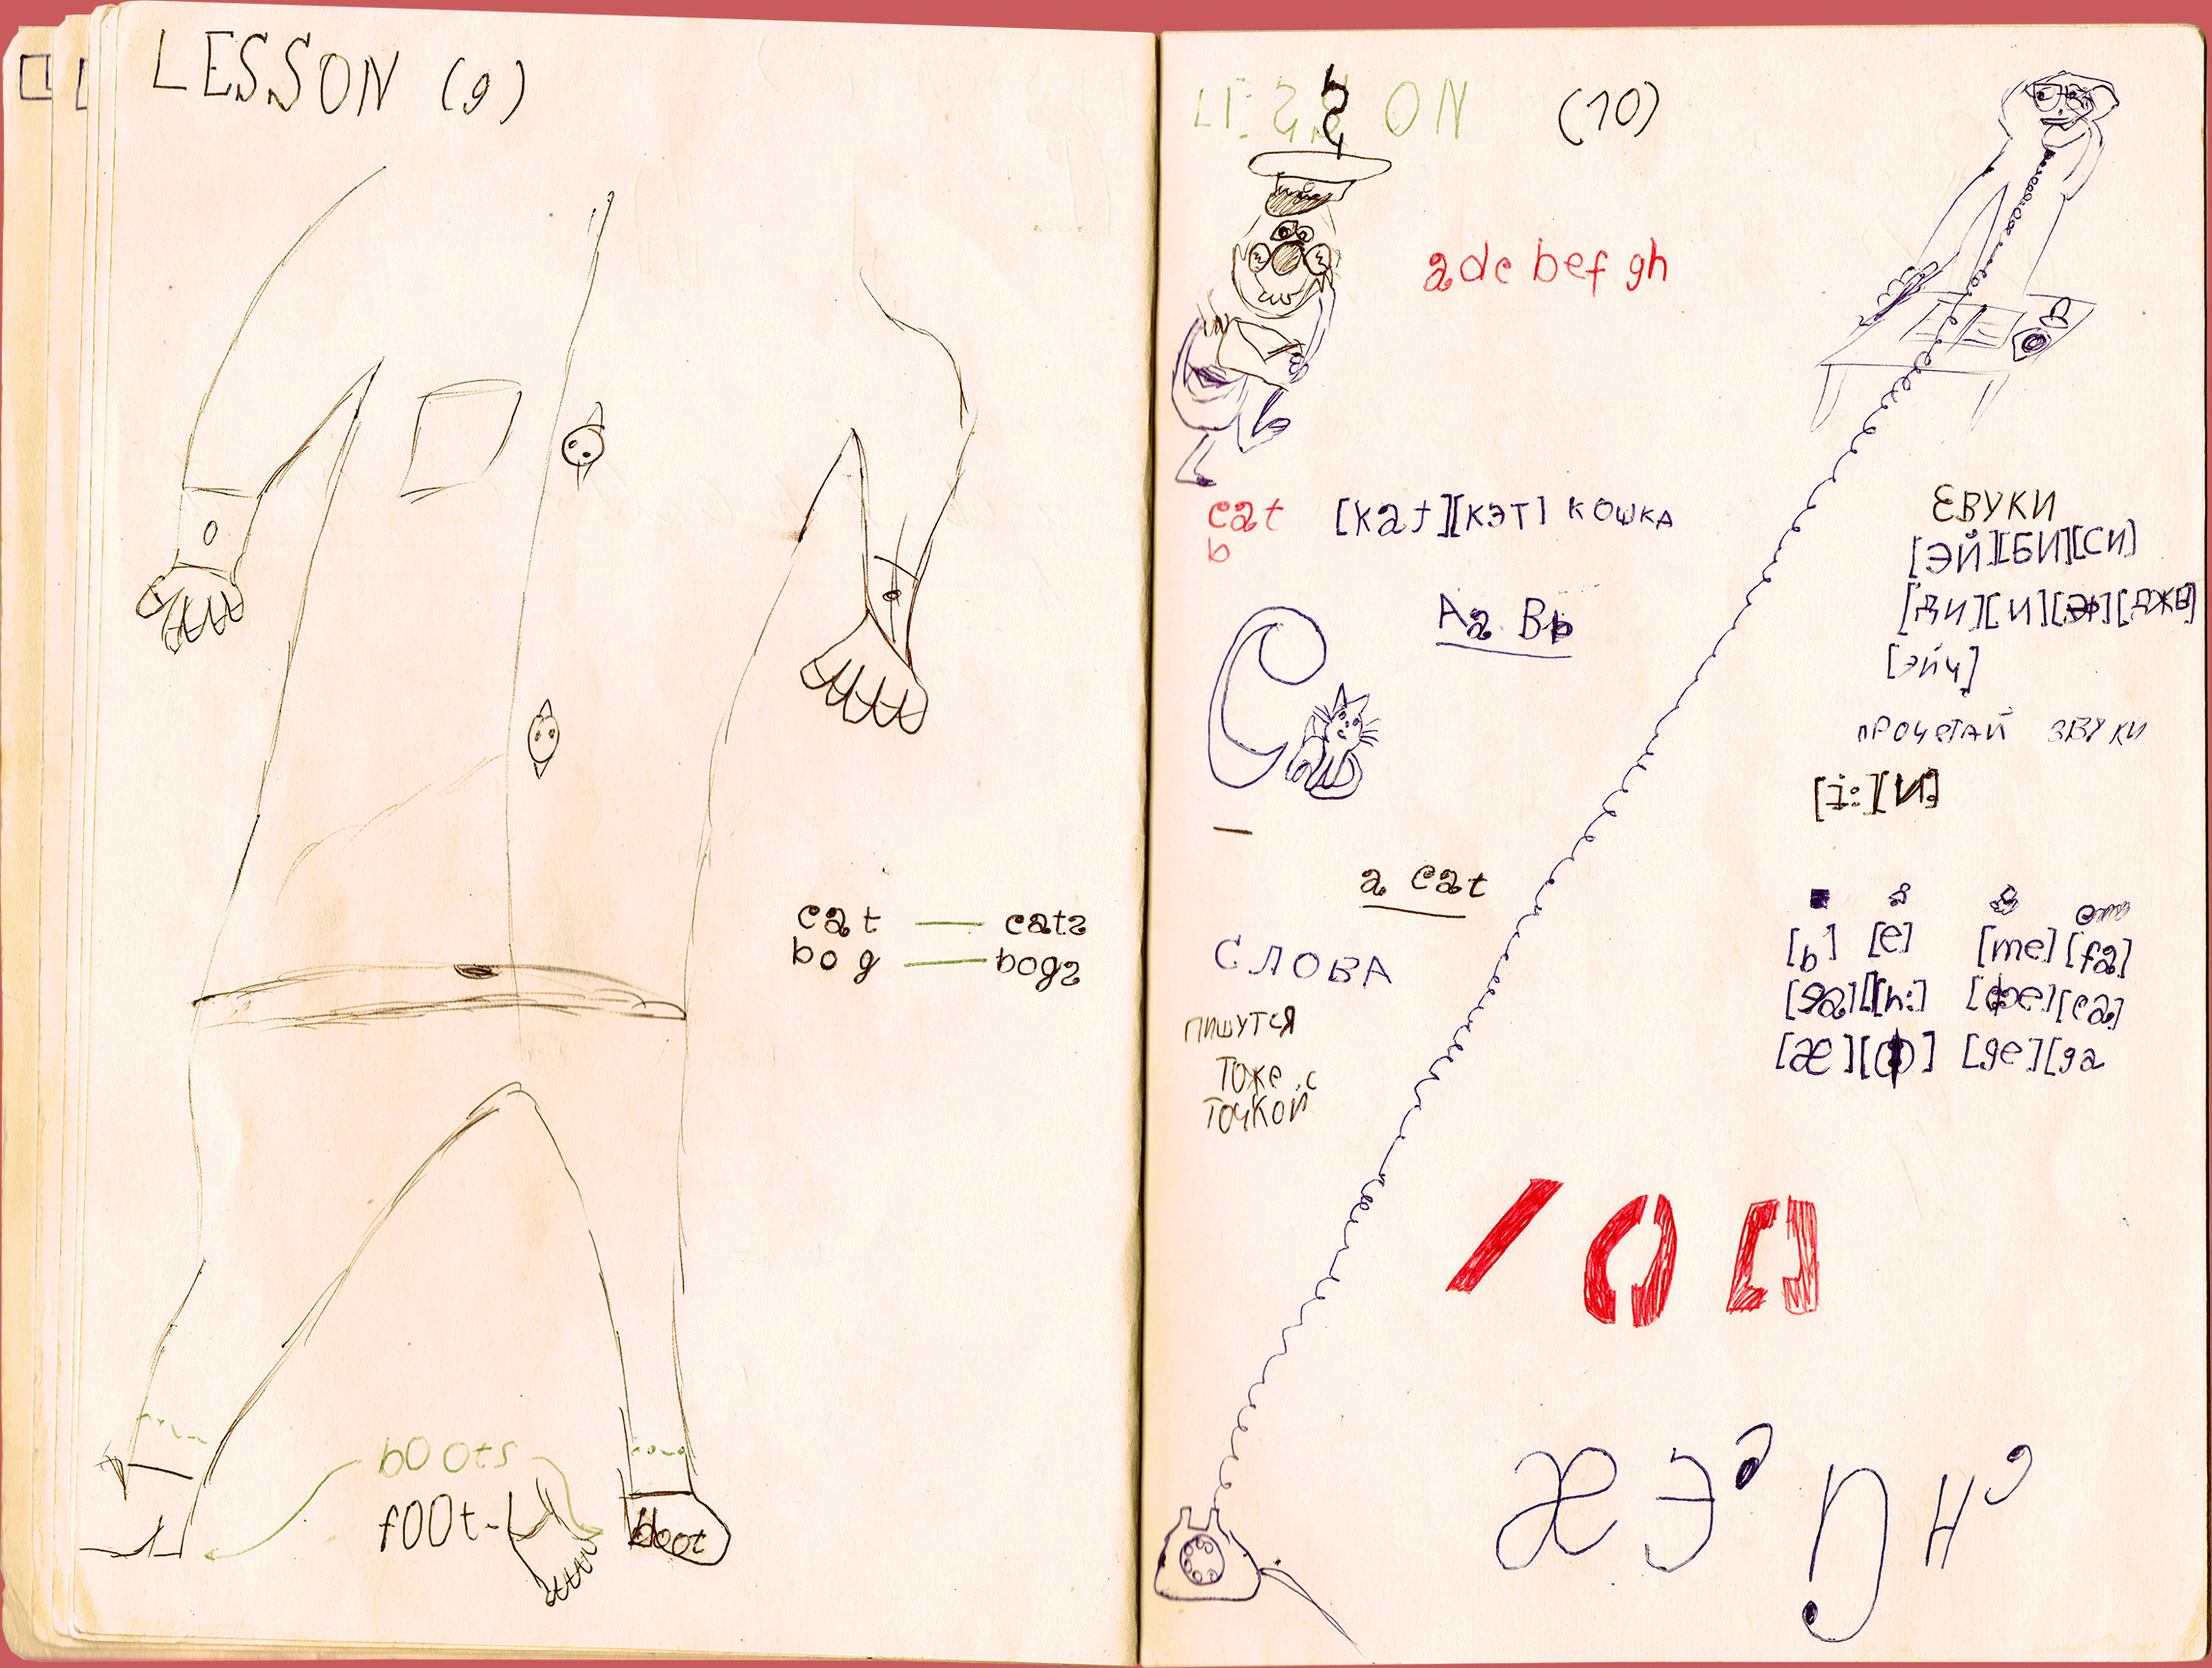 LESSON (9)
cat — cats
bog — bogs
boots
foot-
boot
LESSON (10)
adc bef gh
cat [kat][кэт] кошка
b
Aa Bb
a cat
СЛОВА
пишутся
тоже с
точкой
ЕВУКИ
[ЭЙ][БИ][СИ]
[ДИ][И][ЭФ][ДЖЕ]
[эйч]
прочетай звуки
[i:][И]
[b] [e] [me] [fa]
[ga][h:] [фe][ca]
[æ][ф] [ge][ga
Æ Э ə Ŋ H ə